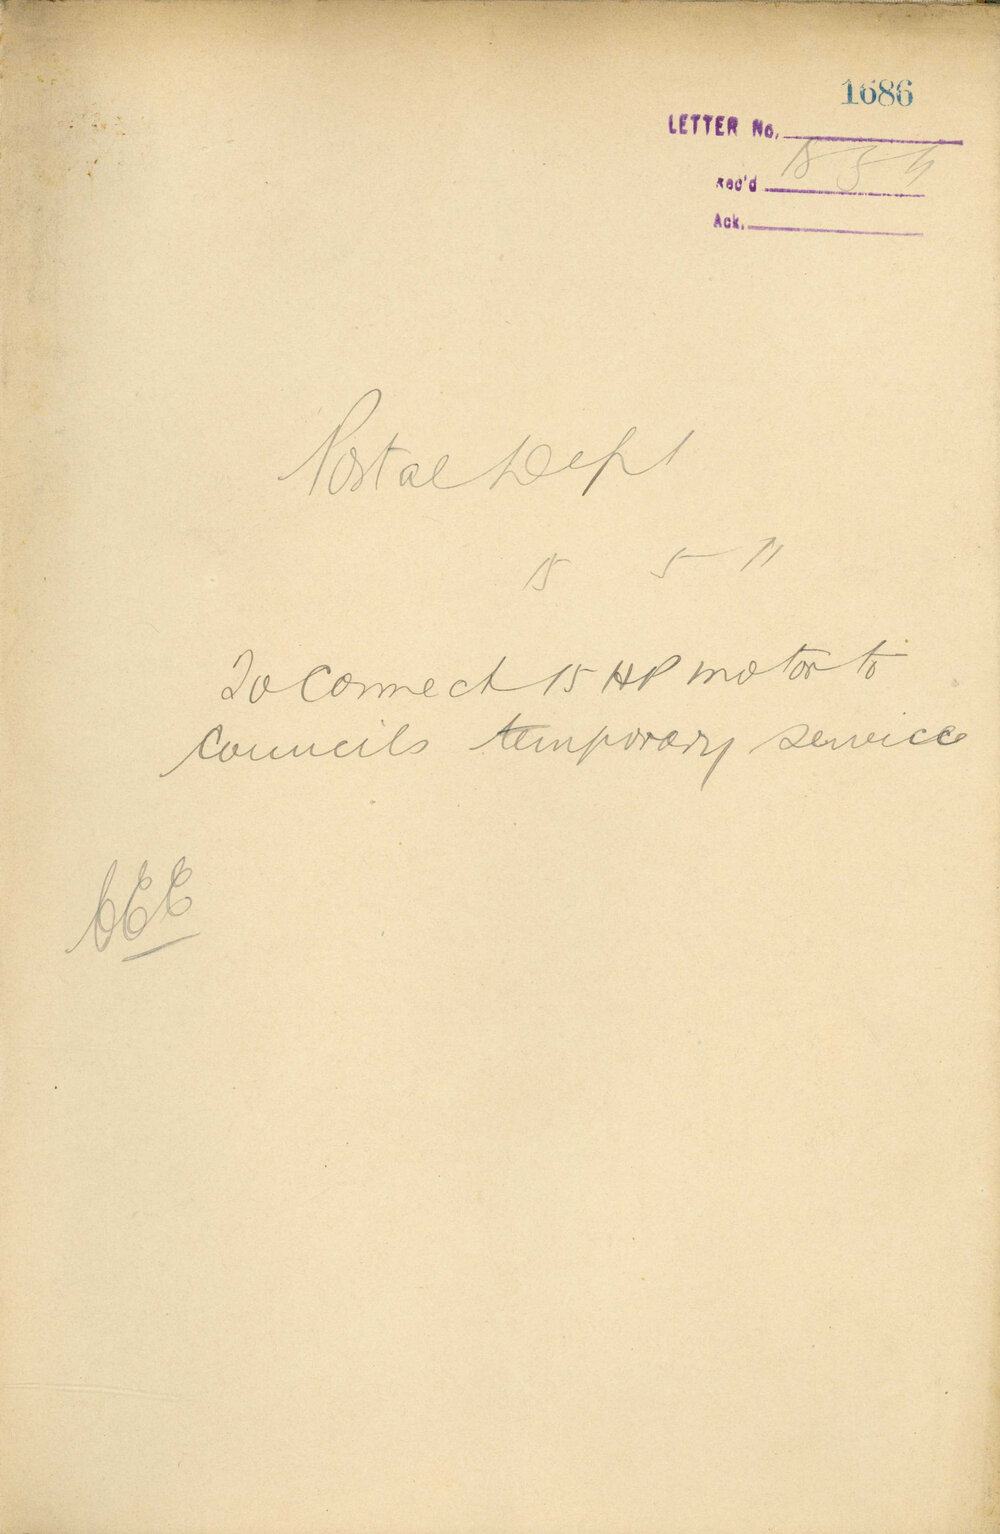 1686
LETTER No.
Rec'd 15 5 11
Ack.
Postal Dept
15 5 11
To Connect 15 HP motor to
Councils temporary service
CEE